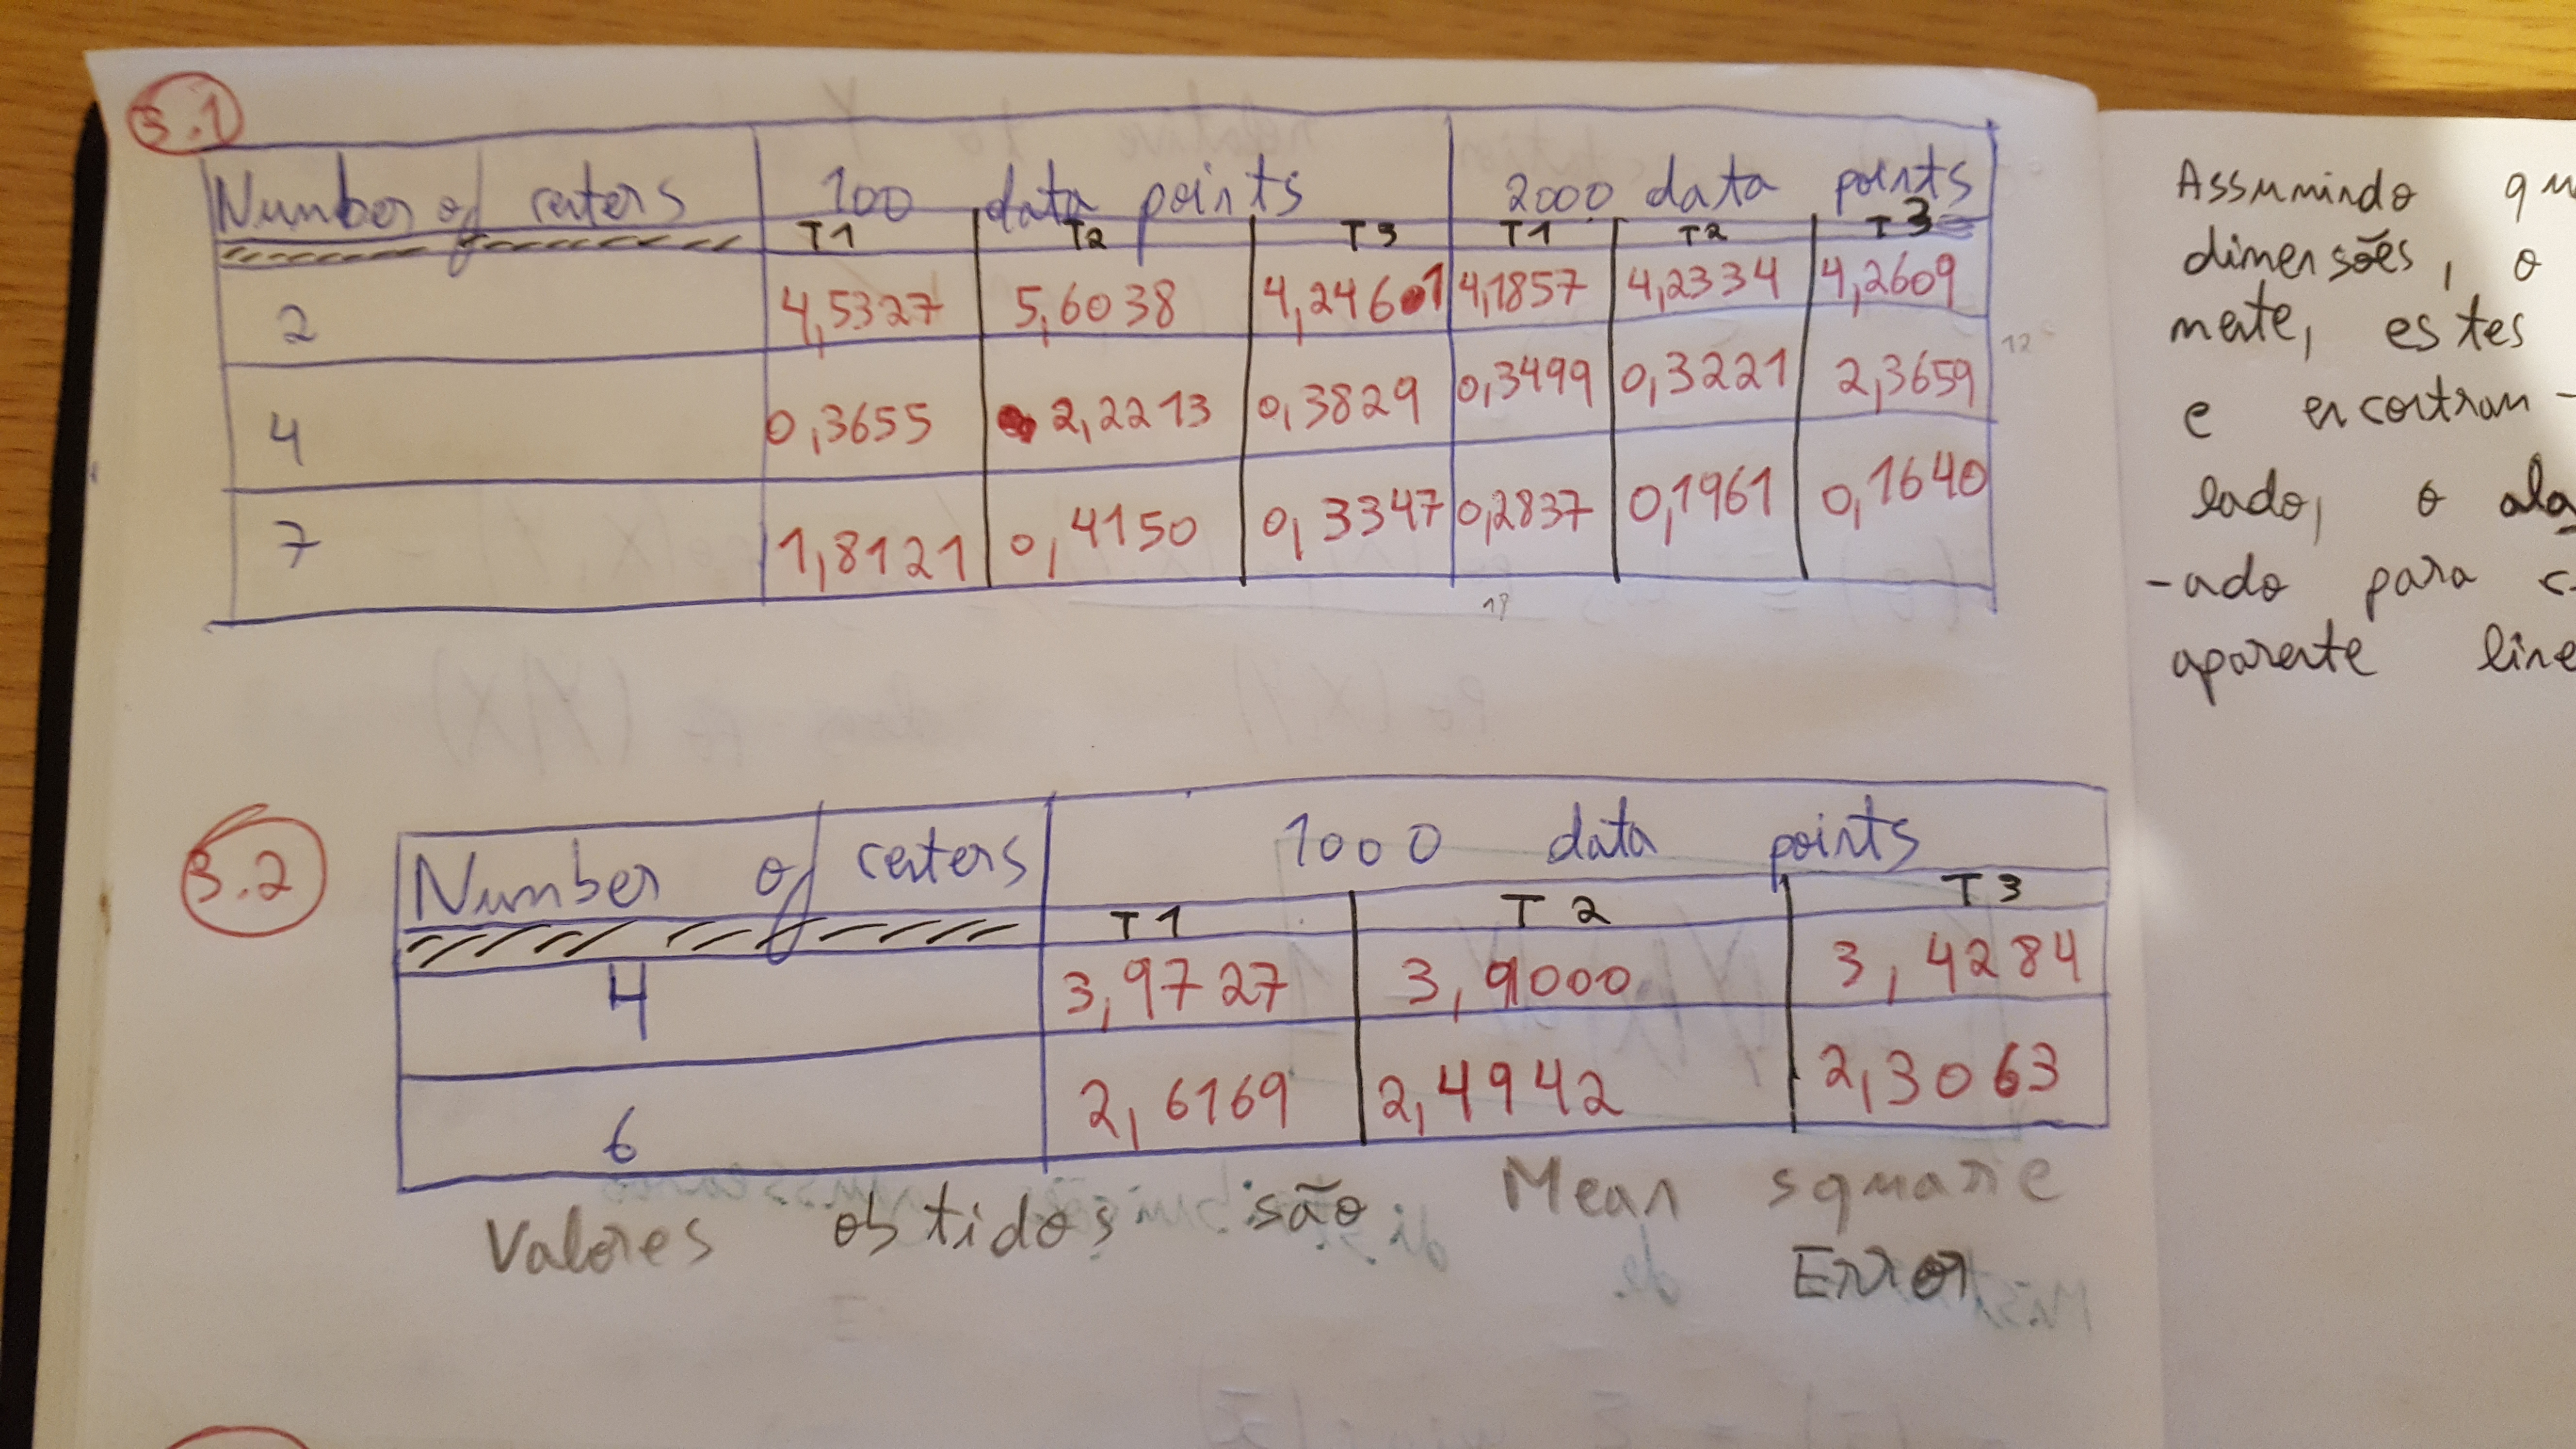 3.1
Number of centers 100 data points 2000 data points
T1 T2 T3 T1 T2 T3
2 4,5327 5,6038 4,2461 4,1857 4,2334 4,2609
4 0,3655 2,2213 0,3829 0,3499 0,3221 2,3659
7 1,8121 0,4150 0,3347 0,2837 0,1961 0,1640
12
18
3.2
Number of centers 1000 data points
T1 T2 T3
4 3,9727 3,9000 3,4284
6 2,6169 2,4942 2,3063
Valores obtidos são Mean square
Error
Assumindo qu
dimensões, o
mente, estes
e encontram-
lado, o alg
-ado para c
aparente line